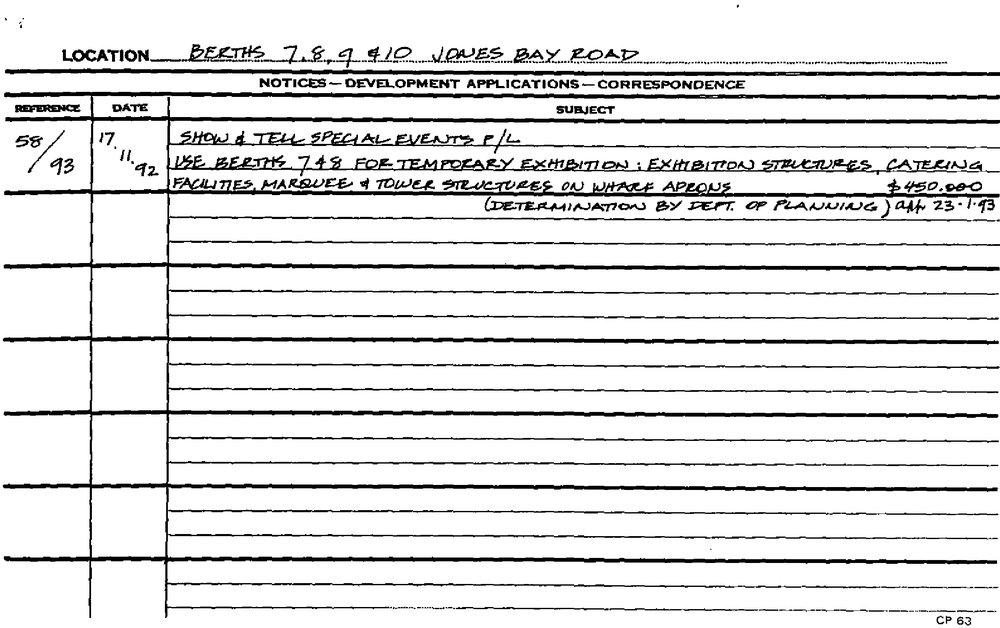 LOCATION BERTHS 7.8.9 &10 JONES BAY ROAD
NOTICES — DEVELOPMENT APPLICATIONS — CORRESPONDENCE
REFERENCE DATE SUBJECT
58/93 17.11.92 SHOW & TELL SPECIAL EVENTS P/L
USE BERTHS 7&8 FOR TEMPORARY EXHIBITION : EXHIBITION STRUCTURES, CATERING
FACILITIES, MARQUEE & TOWER STRUCTURES ON WHARF APRONS $450.000
(DETERMINATION BY DEPT. OF PLANNING) app 23.1.93
CP 63